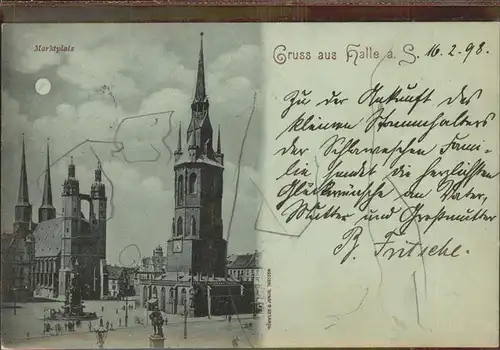 Marktplatz
Gruss aus Halle a. S. 16.2.98.
Zu der Ankunft des
kleinen Stammhalters
der Schlaweschen Fami-
lie sendet die herzlichsten
Glückwünsche an Vater,
Mutter und Großmutter
B. Fritsche.